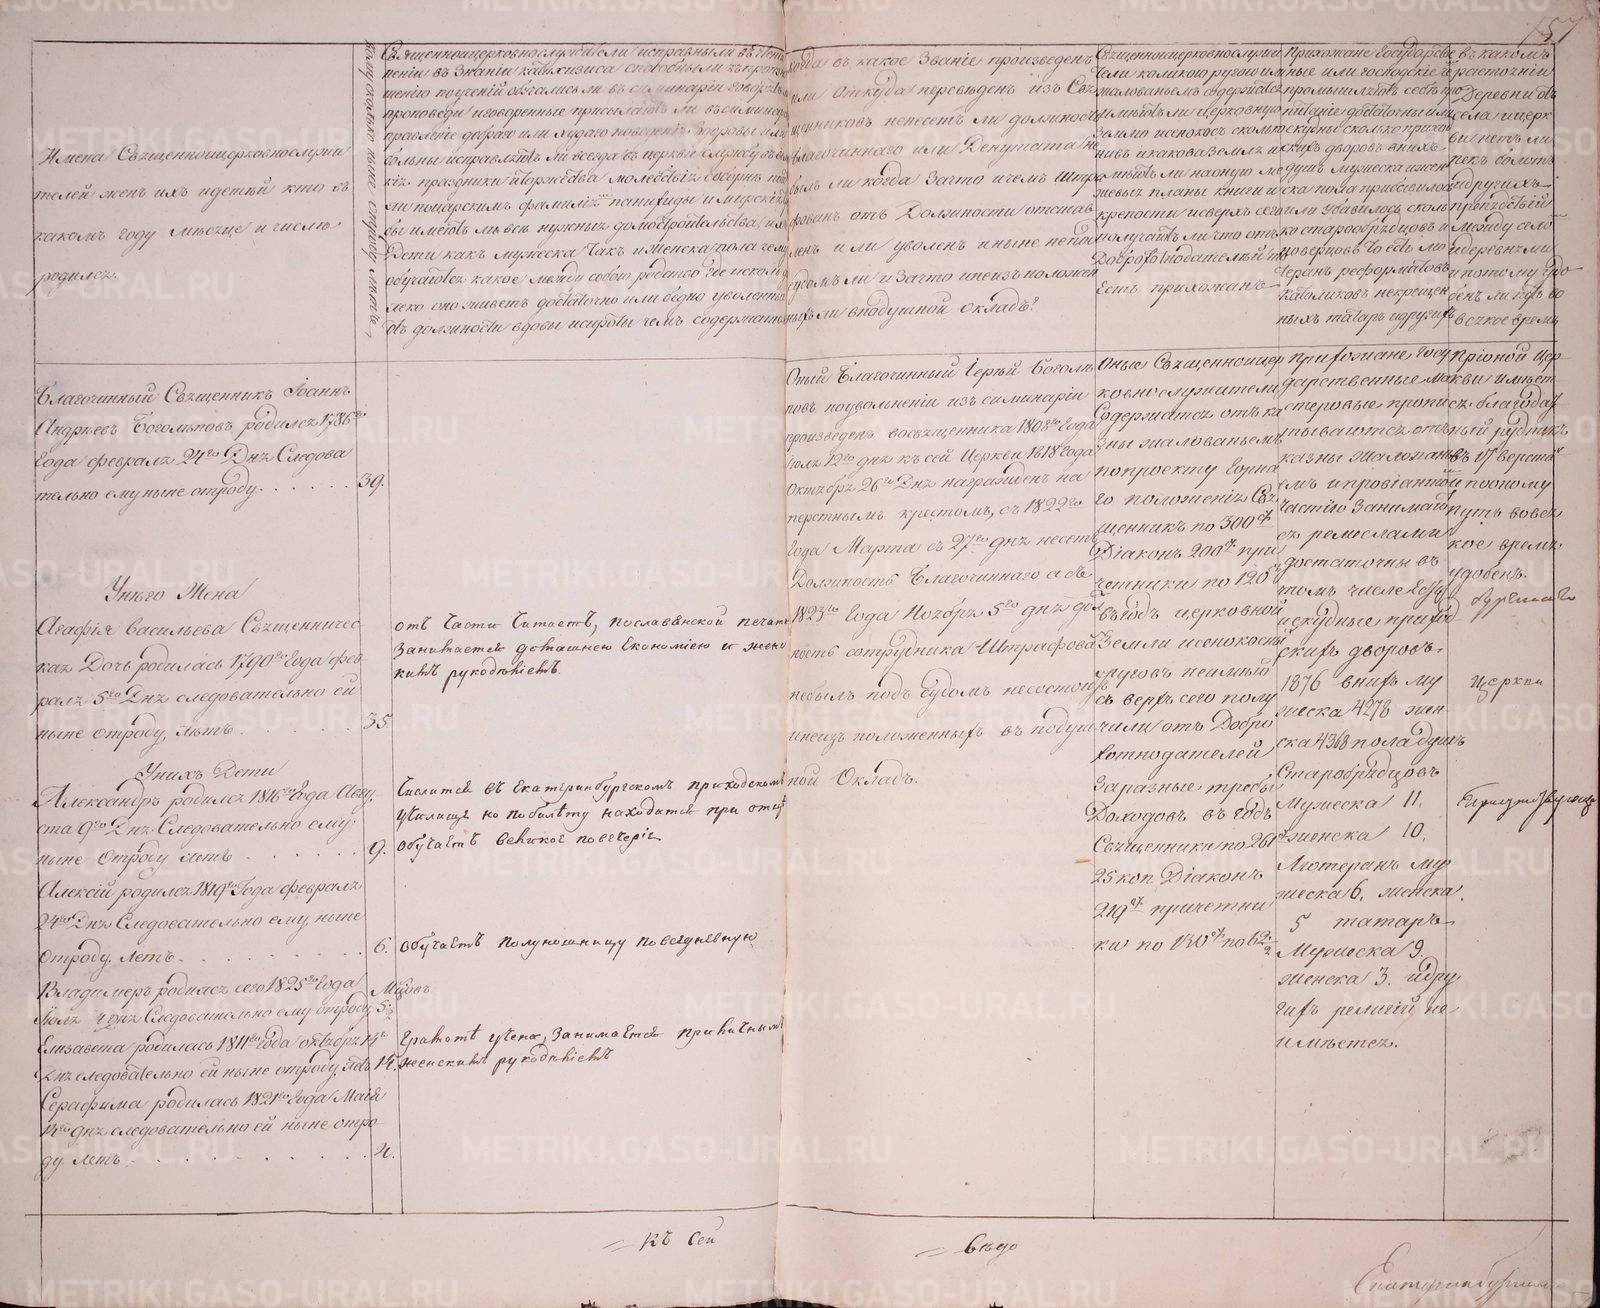 157
Имена Священноцерковнослужи
телей женъ ихъ и детей кто въ
какомъ году месяце и числе
родился.
кому сколько ныне отроду летъ
Священноцерковнослужители исправны ли въ чте
нии въ знании катихизиса способны ли къ
поучений обучались ли в семинарии говорятъ ли
проповеди и говоренные присылаютъ ли въ семинар
правление добраго или худаго поведения здоровы или
больны исправляютъ ли всегда въ церкви службу въ вели
кия праздники и торжества молебствия соборне
ли по царскимъ фамилиямъ панифиды
имеютъ ли всю нужныя домостроительства, ихъ
Дети какъ мужеска такъ и женска пола чему
обучаются какое между собою родство где и сколь
леко оно живетъ достаточно или бедно уволенныя
отъ должности вдовы и сироты чемъ содержатся
когда въ какое звание произведенъ
или откуда переведенъ изъ Свя
щенниковъ не несетъ ли должность
благочиннаго или Депутата не
былъ ли когда за что и чемъ штра
фованъ отъ Должности отстав
ленъ или уволенъ и ныне не подъ
судомъ ли и за что и не изъ положен
ныхъ ли въ подушной окладъ?
Священноцерковнослужи
тели какою ругою или
жалованьемъ содержатся
и имеютъ ли церковную
землю и сенокосъ сколько
нивъ и какова земля и
имеютъ ли на оную ме
жевыя планы книги и
крепости и сверхъ сего
получаютъ ли что отъ
Доброхотнодателей то
Есть прихожанъ
Прихожане Государстве
ные или господские че
промышляютъ есть про
питание достаточны или
скудны сколько приход
скихъ дворовъ въ нихъ
душъ мужеска и жен
ска пола прибавилось
или убавилось сколь
ко старообрядцовъ и
иноверцовъ то есть лю
теранъ реформатовъ
католиковъ некрещен
ныхъ татаръ и другихъ
въ какомъ
расстоянии
Деревни отъ
села и церк
ви нетъ ли
рекъ болотъ
и другихъ
препятствий
между село
и деревнями
и потому удо
бенъ ли путь во
всякое время
Благочинный Священникъ Иоаннъ
Андреевъ Боголеповъ, родился 1786го
Года февраля 24го Дня Следова
тельно ему ныне отроду . . . . . . 39.
Оный Благочинный Иерей Боголе
повъ по увольнении изъ семинарии
произведенъ во священника 1808го Года
Июля 12го дня къ сей Церкви 1818 Года
Октября 26го Дня награжденъ на
перстнымъ крестомъ, съ 1822го
Года Марта съ 27го дня несетъ
Должность Благочиннаго а съ
1823го Года Ноября 5го дня дол
жность сотрудника Штрафованъ
небылъ подъ Судомъ не состоитъ
и не изъ положенныхъ въ подуш
ной Окладъ.
Оные Священноцер
ковнослужители
Содержатся отъ ка
зны жалованьемъ
по проекту Горна
го положения Свя
щенникъ по 300 р
Диаконъ 200 р при
четники по 120 р
въ годъ церковной
Земли и сенокосныхъ
луговъ неимеютъ
съ верхъ сего полу
чали отъ Добро
хотнодателей
За разные требы
Доходовъ въ годъ
Священники по 261 р
25 коп Диаконъ
219 р причетни
ки по 130 р по 62 к
Прихожане Госу
дарственные ма
стеровые пропи
тываются отъ
казны жалованье
емъ и провиантомъ
частию занимают
ся ремеслами
достаточны въ
томъ числе есть
и скудные приход
скихъ дворовъ.
1876 въ нихъ му
жеска 4278 жен
ска 4368 пола душъ
Старобрядцовъ
Мужеска 11.
женска 10.
Лютеранъ му
жеска 6. женска
5 татаръ
Мужеска 9.
женска 3. и дру
гихъ религий не
имеется.
При оной Цер
кви имеет
ся благодат
ный рудникъ
въ 17 верста
и по оному
путь во вся
кое время
удобенъ.
Церкви
У него Жена
Агафия Васильева Священничес
кая Дочь родилась 1790го Года фев
раля 5го Дня следовательно ей
ныне отроду, летъ . . . . . . 35.
отъ части читаетъ, по славянской печати
занимается домашнею економиею и жен
скимъ рукоделиемъ.
У нихъ Дети
Александръ родился 1816го Года Авгу
ста 9го Дня Следовательно ему
ныне Отроду летъ . . . . . . 9.
Числится въ Екатеринбургскомъ приходскомъ
училище но по билету находится при отце
обучаетъ великое повечерие
Алексей родился 1819го Года февраля
24го Дня Следовательно ему ныне
отроду летъ . . . . . . 6.
обучаетъ полунощницу повседневную
Владимеръ родился сего 1825го Года
Июля 4 дня Следовательно ему отроду
Месяцовъ
5.
Елизавета родилась 1811го Года октября 14го
Дня следовательно ей ныне отроду летъ 14.
Грамоте учена, занимается приличнымъ
женскимъ рукоделиемъ
Серафима родилась 1821го Года Маия
14го дня следовательно ей ныне отро
ду летъ . . . . . . 4.
къ Сей
ведо
Екатеринбургска
METRIKI.GASO-URAL.RU